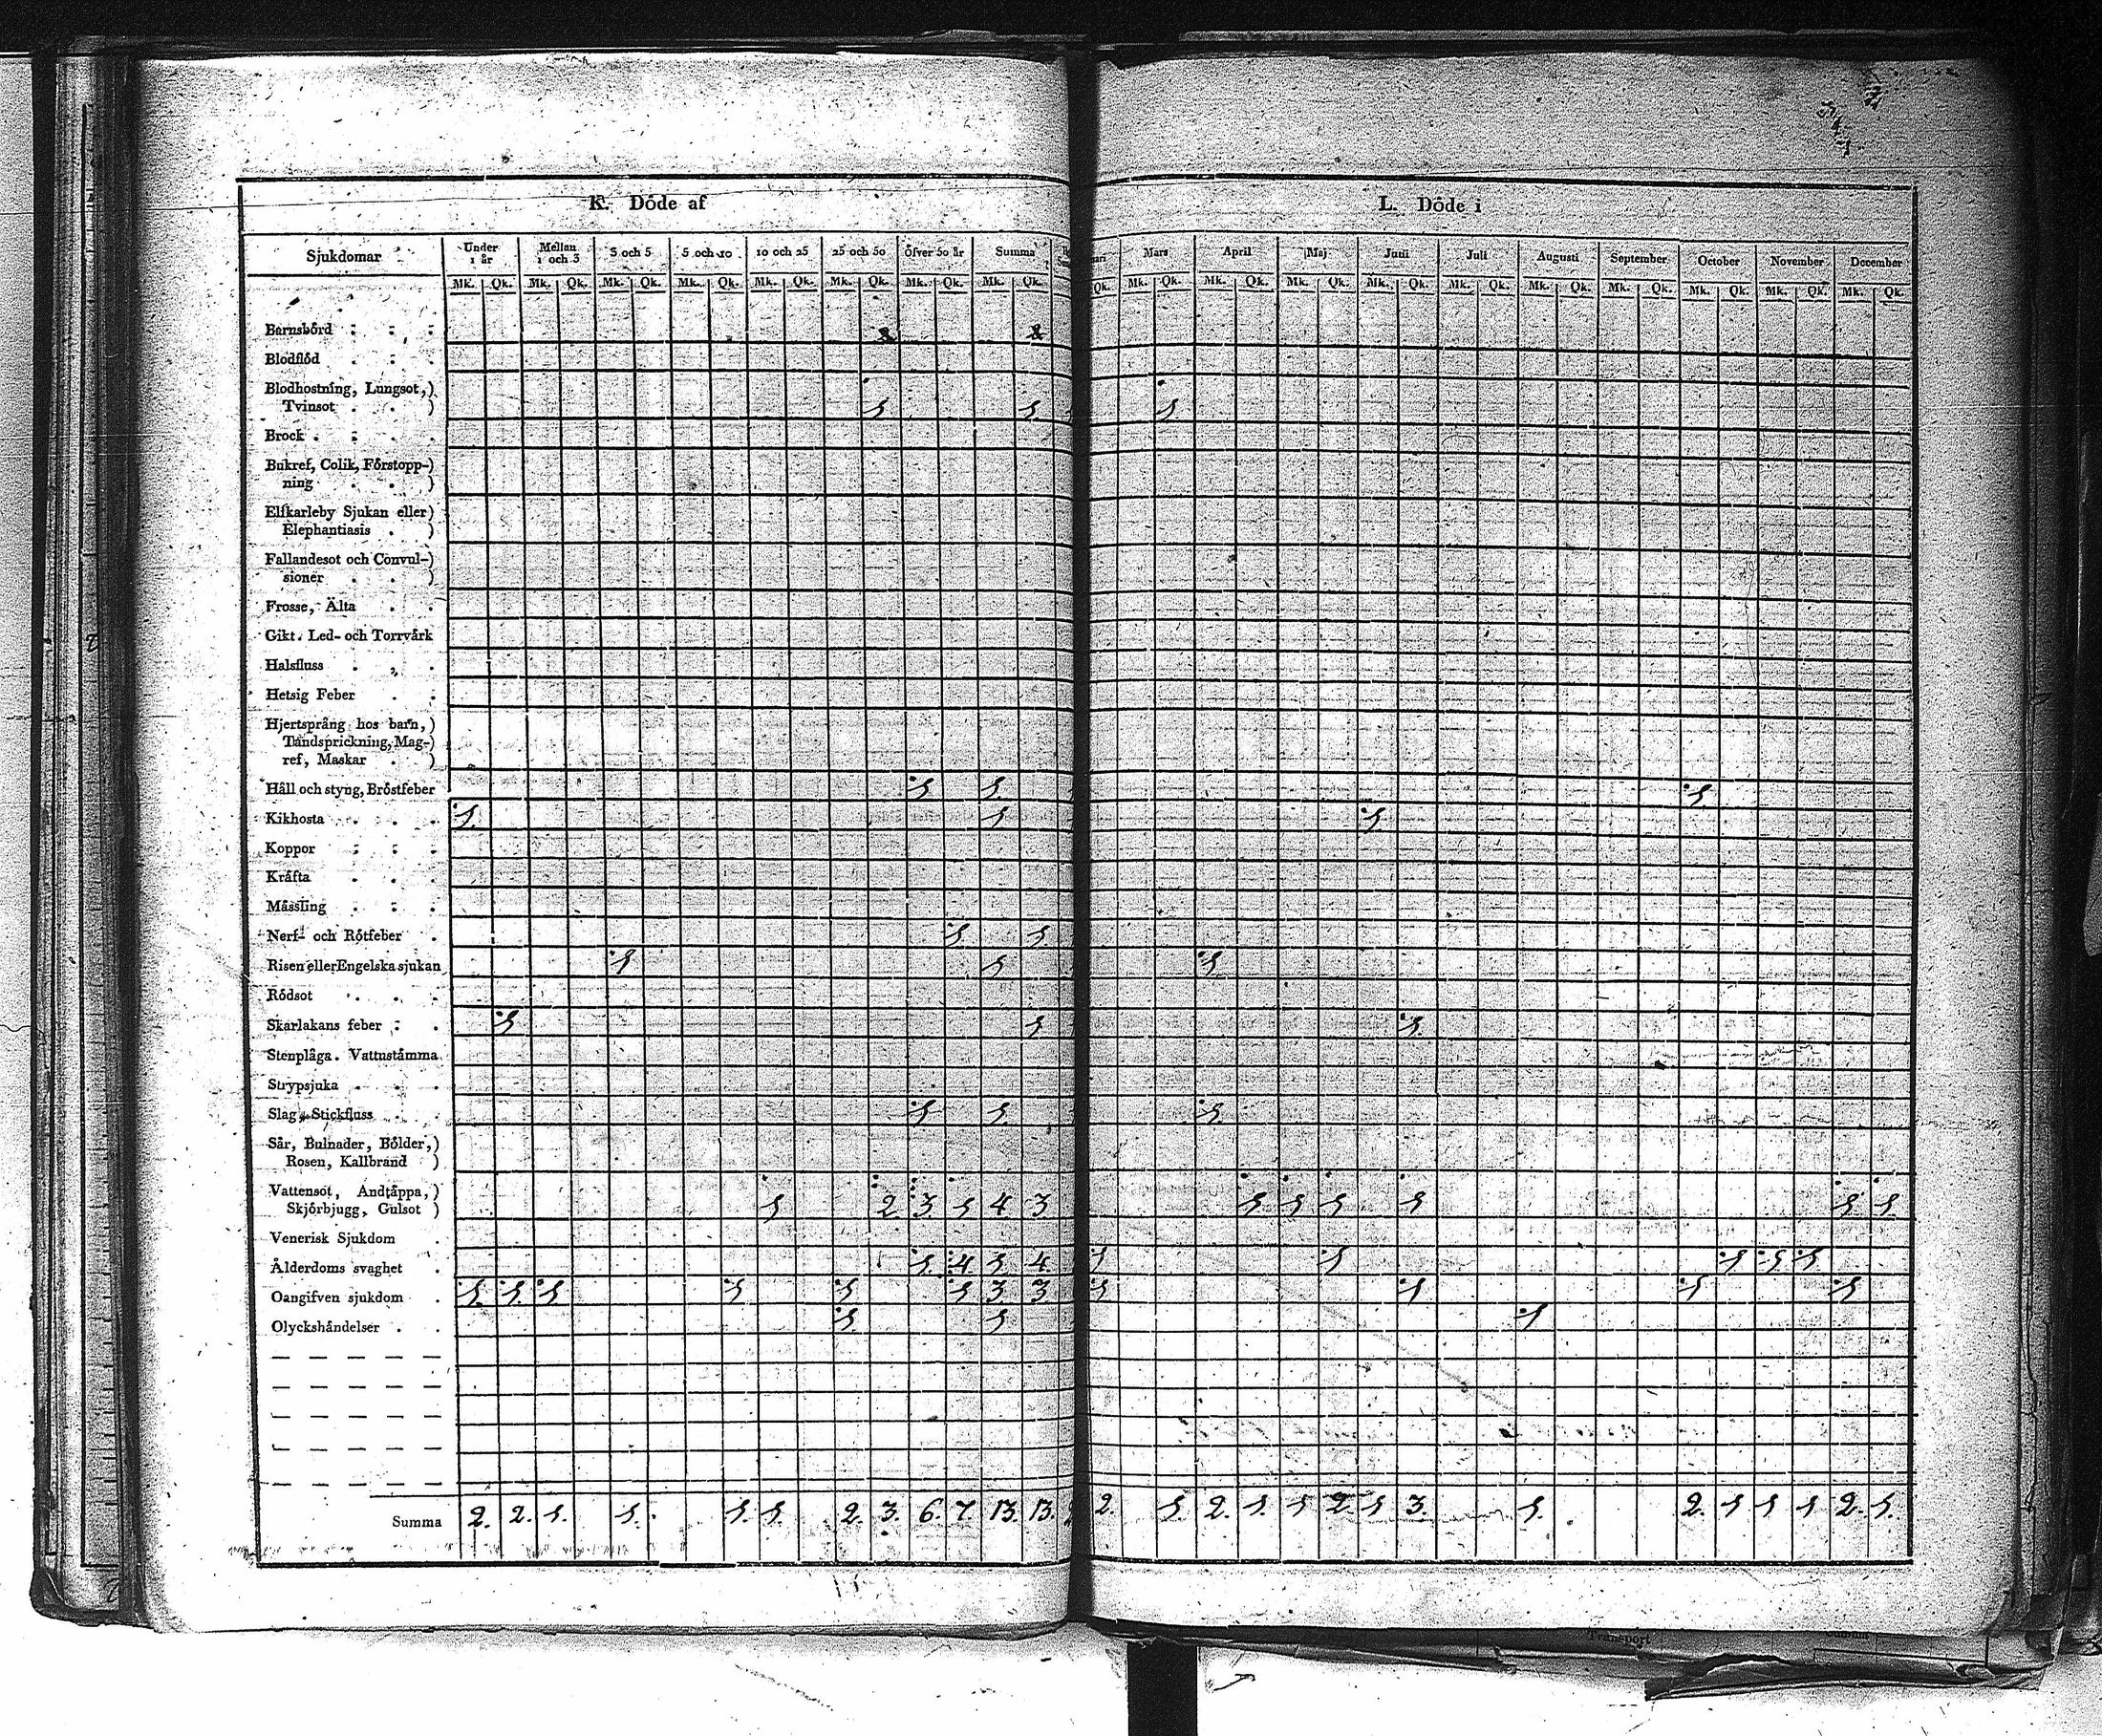 K. Döde af
L. Döde i
Sjukdomar
Under 1 år
Mellan 1 och 3
3 och 5
5 och 10
10 och 25
25 och 50
Öfver 50 år
Summa
Mars
April
Maj
Juni
Juli
Augusti
September
October
November
December
Mk. Qk. Mk. Qk. Mk. Qk. Mk. Qk. Mk. Qk. Mk. Qk. Mk. Qk. Mk. Qk.
Qk. Mk. Qk. Mk. Qk. Mk. Qk. Mk. Qk. Mk. Qk. Mk. Qk. Mk. Qk. Mk. Qk. Mk. Qk. Mk. Qk.
Barnsbörd
Blodflöd
Blodhostning, Lungsot,)
Tvinsot ) 1 1 1
Brock
Bukref, Colik, Förstopp-)
ning )
Elfkarleby Sjukan eller)
Elephantiasis )
Fallandesot och Convul-)
sioner )
Frosse, Älta
Gikt. Led- och Torrvärk
Halsfluss
Hetsig Feber
Hjertsprång hos barn,)
Tandsprickning, Mag-)
ref, Maskar )
Håll och styng, Bröstfeber 1 1 1
Kikhosta 1. 1 1
Koppor
Kräfta
Mässling
Nerf- och Rötfeber 1 1
Risen eller Engelska sjukan 1 1 1
Rödsot
Skarlakans feber 1 1 1
Stenplåga. Vattustämma
Strypsjuka
Slag, Stickfluss 1 1 1
Sår, Bulnader, Bölder,)
Rosen, Kallbrand )
Vattensot, Andtäppa,)
Skjörbjugg, Gulsot ) 1 2 3 1 4 3 1 1 1 1 1 1
Venerisk Sjukdom
Ålderdoms svaghet 1 4 1 4 1 1 1 1 1
Oangifven sjukdom 1 1 1 1 1 1 3 3 1 1 1 1
Olyckshändelser 1 1 1
Summa 2. 2. 1. 1. 1. 1. 2. 3. 6. 7. 13. 13. 2. 1. 2. 1. 1 2. 1 3. 1. 2. 1 1 1 2. 1.
Transport